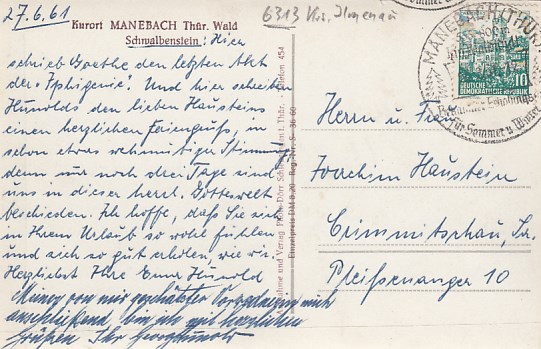 27.6.61
6313 Krs. Ilmenau
Kurort MANEBACH Thür. Wald
Schwalbenstein: Hier
schrieb Goethe den letzten Akt
der "Iphigenie". Und hier schreiben
Hunolds den lieben Hausteins
einen herzlichen Feriengruß, in
schon etwas wehmütiger Stimmung,
denn nur noch drei Tage sind
uns in dieser herrl. Gotteswelt
beschieden. Ich hoffe, daß Sie sich
in Ihrem Urlaub so wohl fühlen
und sich so gut erholen, wie wir.
Herzlichst Ihre Erna Hunold
Meiner von mir geschätzten
anschließend bin ich mit herzlichen
Grüßen Ihr
Aufnahme und Verlag Photo-Thür
Telefon 454
Einzelpreis DM 0.20
MANEBACH (THÜR.
Für Sommer u. Winter
DEUTSCHE
DEMOKRATISCHE REPUBLIK
10
Herrn u. Frau
Joachim Haustein
Crimmitschau, Sa.
Pleißenanger 10